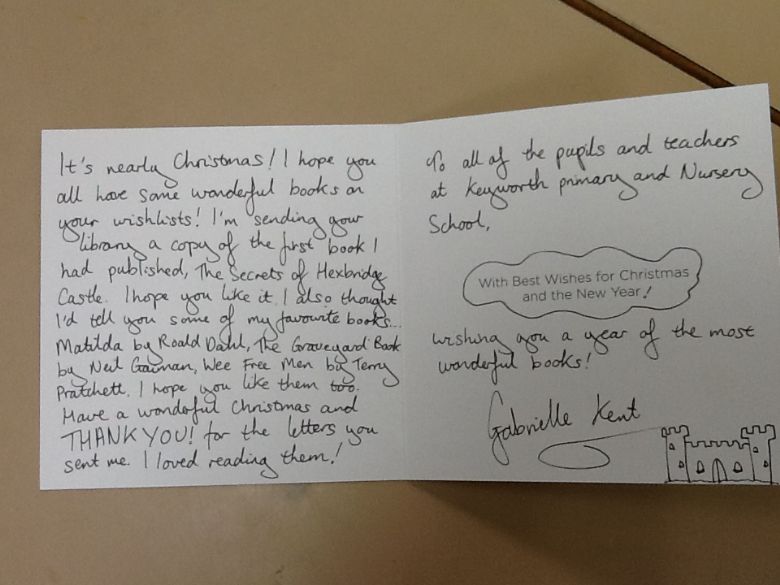 It's nearly Christmas! I hope you
all have some wonderful books on
your wishlists! I'm sending your
library a copy of the first book I
had published, The Secrets of Hexbridge
Castle. I hope you like it. I also thought
I'd tell you some of my favourite books...
Matilda by Roald Dahl, The Graveyard Book
by Neil Gaiman, Wee Free Men by Terry
Pratchett. I hope you like them too.
Have a wonderful Christmas and
THANK YOU! for the letters you
sent me. I loved reading them!
To all of the pupils and teachers
at Keyworth primary and Nursery
School,
With Best Wishes for Christmas
and the New Year!
wishing you a year of the most
wonderful books!
Gabrielle Kent